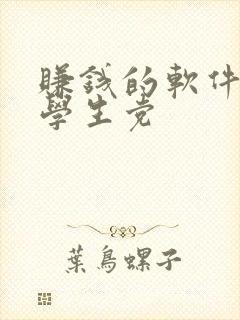 賺錢的軟件
學生党
葉鳥螺子